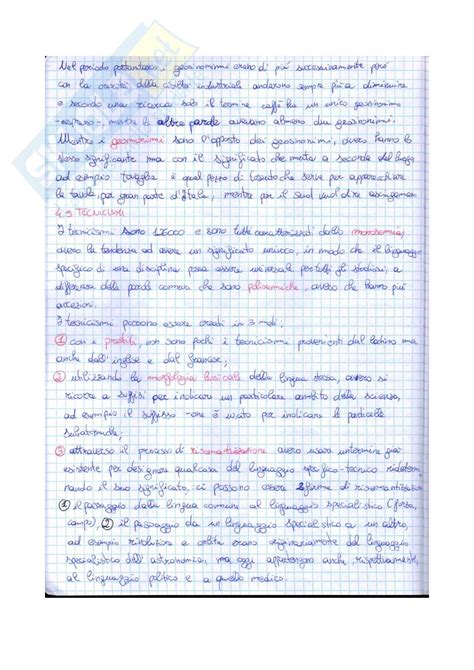 Nel periodo postunitario i geosinonimi erano di più successivamente però
con la crescita della civiltà industriale andarono sempre più a diminuire
e secondo una ricerca solo il termine caffè ha un unico geosinonimo
espresso, mentre le altre parole avevano almeno due geosinonimi.
Mentre i geomonimi sono l'opposto dei geosinonimi, ovvero hanno lo
stesso significante ma con il significato che muta a seconda del luogo
ad esempio tovaglia è quel pezzo di tessuto che serve per apparecchiare
la tavola per gran parte d'Italia, mentre per il Sud vuol dire asciugamano
4.5 TECNICISMI
I tecnicismi sono e sono tutti caratterizzati dalla monosemia,
ovvero la tendenza ad avere un significato univoco, in modo che il linguaggio
specifico di una disciplina possa essere universale per tutti gli studiosi, a
differenza delle parole comuni che sono polisemiche, ovvero che hanno più
accezioni.
I tecnicismi possono essere creati in 3 modi;
1 con i prestiti, non sono pochi i tecnicismi provenienti dal latino ma
anche dall'inglese e dal francese;
2 utilizzando la morfologia lessicale della lingua stessa, ovvero si
ricorre a suffissi per indicare un particolare ambito della scienza,
ad esempio il suffisso -one è usato per indicare le particelle
subatomiche;
3 attraverso il processo di risemantizzazione ovvero usare un termine già
esistente per designare qualcosa del linguaggio specifico-tecnico ridetermi-
nando il suo significato, ci possono essere 2 forme di risemantizzazione
1 il passaggio dalla lingua comune al linguaggio specialistico (forza,
campo), 2 il passaggio da un linguaggio specialistico a un altro,
ad esempio rivoluzione e orbita erano originariamente del linguaggio
specialistico dell'astronomia, ma oggi appartengono anche, rispettivamente,
al linguaggio politico e a quello medico.